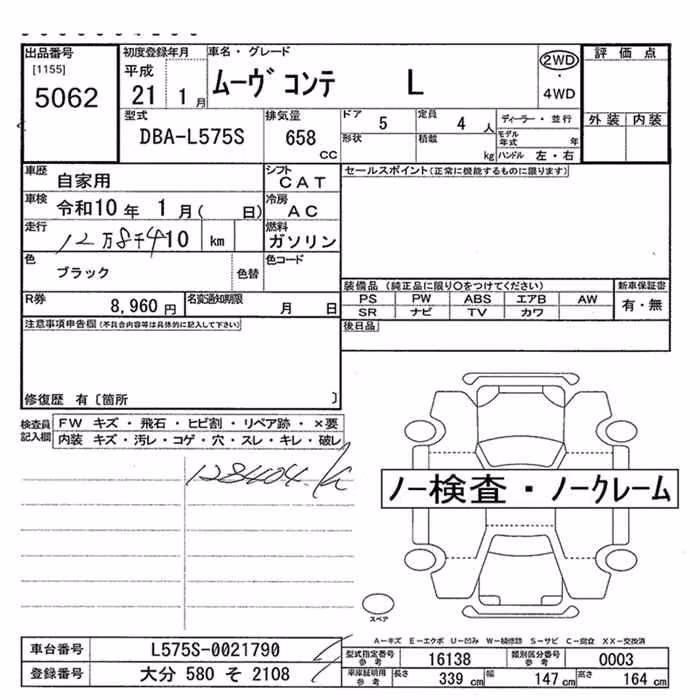 出品番号
[1155]
5062
初度登録年月
平成
21 1月
車名・グレード
ムーヴ コンテ L
2WD
・
4WD
評価点
外装 内装
型式
DBA-L575S
排気量
658
cc
ドア
5
定員
4 人
ディーラー・並行
形状
積載
kg
モデル年式 年
ハンドル 左・右
車歴
自家用
シフト
CAT
セールスポイント(正常に機能するものに限ります)
車検
令和10年 1月( 日)
冷房
AC
走行
12万8千410 km
燃料
ガソリン
色
ブラック
色替
色コード
装備品 (純正品に限り○をつけてください)
新車保証書
PS PW ABS エアB AW
有・無
SR ナビ TV カワ
R券
8,960円
名変通知期限
月 日
後日品
注意事項申告欄(不具合内容等は具体的に記入して下さい)
修復歴 有〔箇所 〕
検査員
記入欄
FW キズ・飛石・ヒビ割・リペア跡・×要
内装 キズ・汚レ・コゲ・穴・スレ・キレ・破レ
128404
ノー検査・ノークレーム
スペア
A-キズ E-エクボ U-凹み W-補修跡 S-サビ C-腐食 XX-交換済
車台番号
L575S-0021790
型式指定番号
参考
16138
類別区分番号
参考
0003
登録番号
大分 580 そ 2108
車庫証明用
参考
長さ
339 cm
幅
147 cm
高さ
164 cm